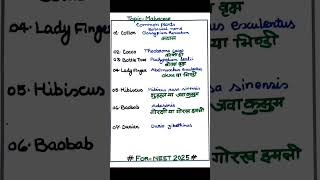 Topic- Malvaceae
Common plants
Botanical name
01· Cotton Gossypium
कपास
02· Cocoa Theobroma cacao
03· Bottle Tree
04· Lady Finger Abelmoschus esculentus
ओकरा या भिण्डी
05· Hibiscus Hibiscus rosa sinensis
गुड़हल या जवा कुसुम
06· Baobab Adansonia
गोरखी या गोरख इमली
07· Durian Durio zibethinus
# For-NEET 2025 #
04· Lady F
05· Hibiscus
06· Baobab
esculentus
या भिण्डी
sa sinensis
जवा कुसुम
गोरख इमली